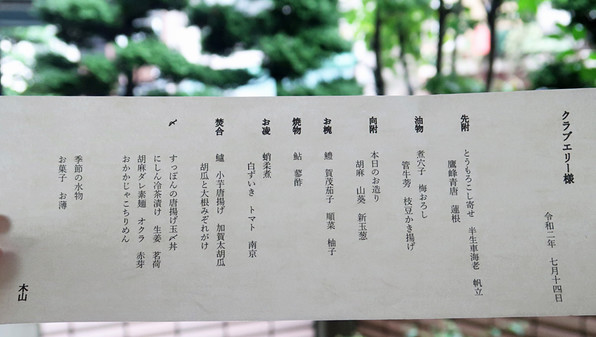 クラブエリー様
令和二年 七月十四日
先附 とうもろこし寄せ 半生車海老 帆立
鷹峰青唐 蓮根
油物 煮穴子 梅おろし
管牛蒡 枝豆かき揚げ
向附 本日のお造り
胡麻 山葵 新玉葱
お椀 鱧 賀茂茄子 順菜 柚子
焼物 鮎 蓼酢
お凌 蛸柔煮
白ずいき トマト 南京
焚合 鱸 小芋唐揚げ 加賀太胡瓜
胡瓜と大根みぞれがけ
〆 すっぽんの唐揚げ玉〆丼
にしん冷茶漬け 生姜 茗荷
胡麻ダレ素麺 オクラ 赤芽
おかかじゃこちりめん
季節の水物
お菓子 お薄
木山